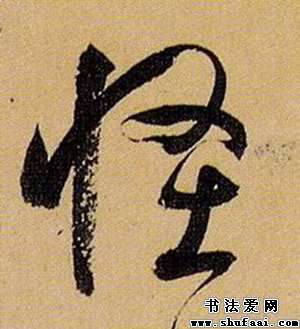 怪
书法爱网
www.shufaai.com